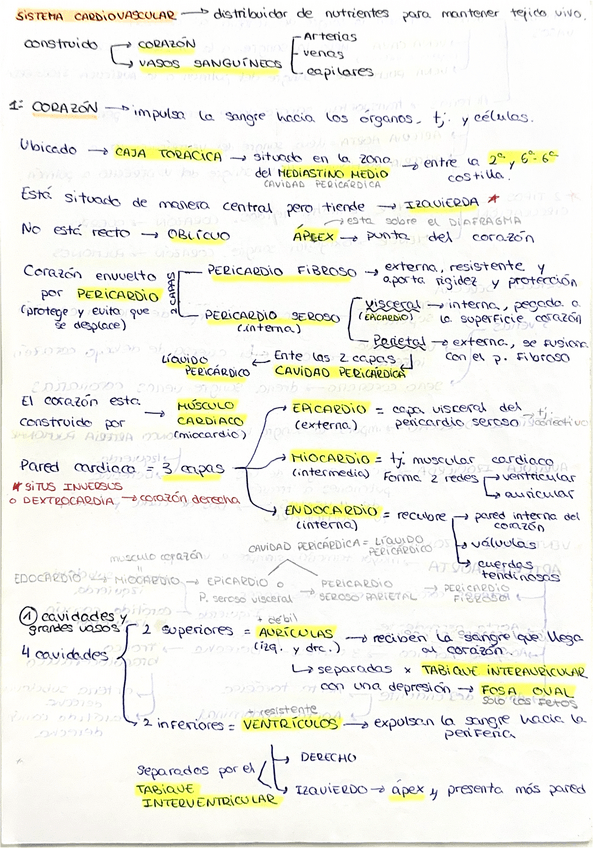 SISTEMA CARDIOVASCULAR → distribuidor de nutrientes para mantener tejido vivo.
construido → CORAZÓN
→ VASOS SANGUÍNEOS
Arterias
venas
capilares
1: CORAZÓN → impulsa la sangre hacia los órganos, tj. y células.
Ubicado → CAJA TORÁCICA → situado en la zona del MEDIASTINO MEDIO → entre la 2ª y 5ª-6ª costilla.
CAVIDAD PERICÁRDICA
Está situado de manera central pero tiende → IZQUIERDA *
No está recto → OBLICUO
ÁPEEX → punta del corazón
→ esta sobre el DIAFRAGMA
Corazón envuelto por PERICARDIO
(protege y evita que se desplace)
PERICARDIO FIBROSO → externa, resistente y aporta rigidez y protección
PERICARDIO SEROSO (interna)
visceral → interna, pegada a la superficie corazón
(EPICARDIO)
Parietal → externa, se fusiona con el p. Fibroso
Ente las 2 capas CAVIDAD PERICARDICA
LÍQUIDO PERICÁRDICO
El corazón esta construido por → MÚSCULO CARDIACO
(miocardio)
Pared cardiaca = 3 capas
EPICARDIO = capa visceral del pericardio seroso → tj. conectivo
(externa)
MIOCARDIO = tj. muscular cardiaco
(intermedia) Forma 2 redes → ventricular
→ auricular
* SITUS INVERSUS
O DEXTROCARDIA → corazón derecha
ENDOCARDIO = recubre → pared interna del corazón
(interna)
→ válvulas
→ cuerdas tendinosas
CAVIDAD PERICÁRDICA = LÍQUIDO PERICÁRDICO
musculo corazón
EDOCARDIO → MIOCARDIO → EPICARDIO O P. seroso visceral → PERICARDIO SEROSO PARIETAL → PERICARDIO FIBROSO
① cavidades y grandes vasos
4 cavidades
+ debil
2 superiores = AURÍCULAS → reciben la sangre que llega al corazón.
(izq. y drc.)
↳ separadas x TABIQUE INTERAURICULAR
con una depresión → FOSA OVAL
solo los fetos
+ resistente
2 inferiores = VENTRÍCULOS → expulsan la sangre hacia la periferia
Separados por el TABIQUE INTERVENTRICULAR
→ DERECHO
→ IZQUIERDO → ápex y presenta más pared